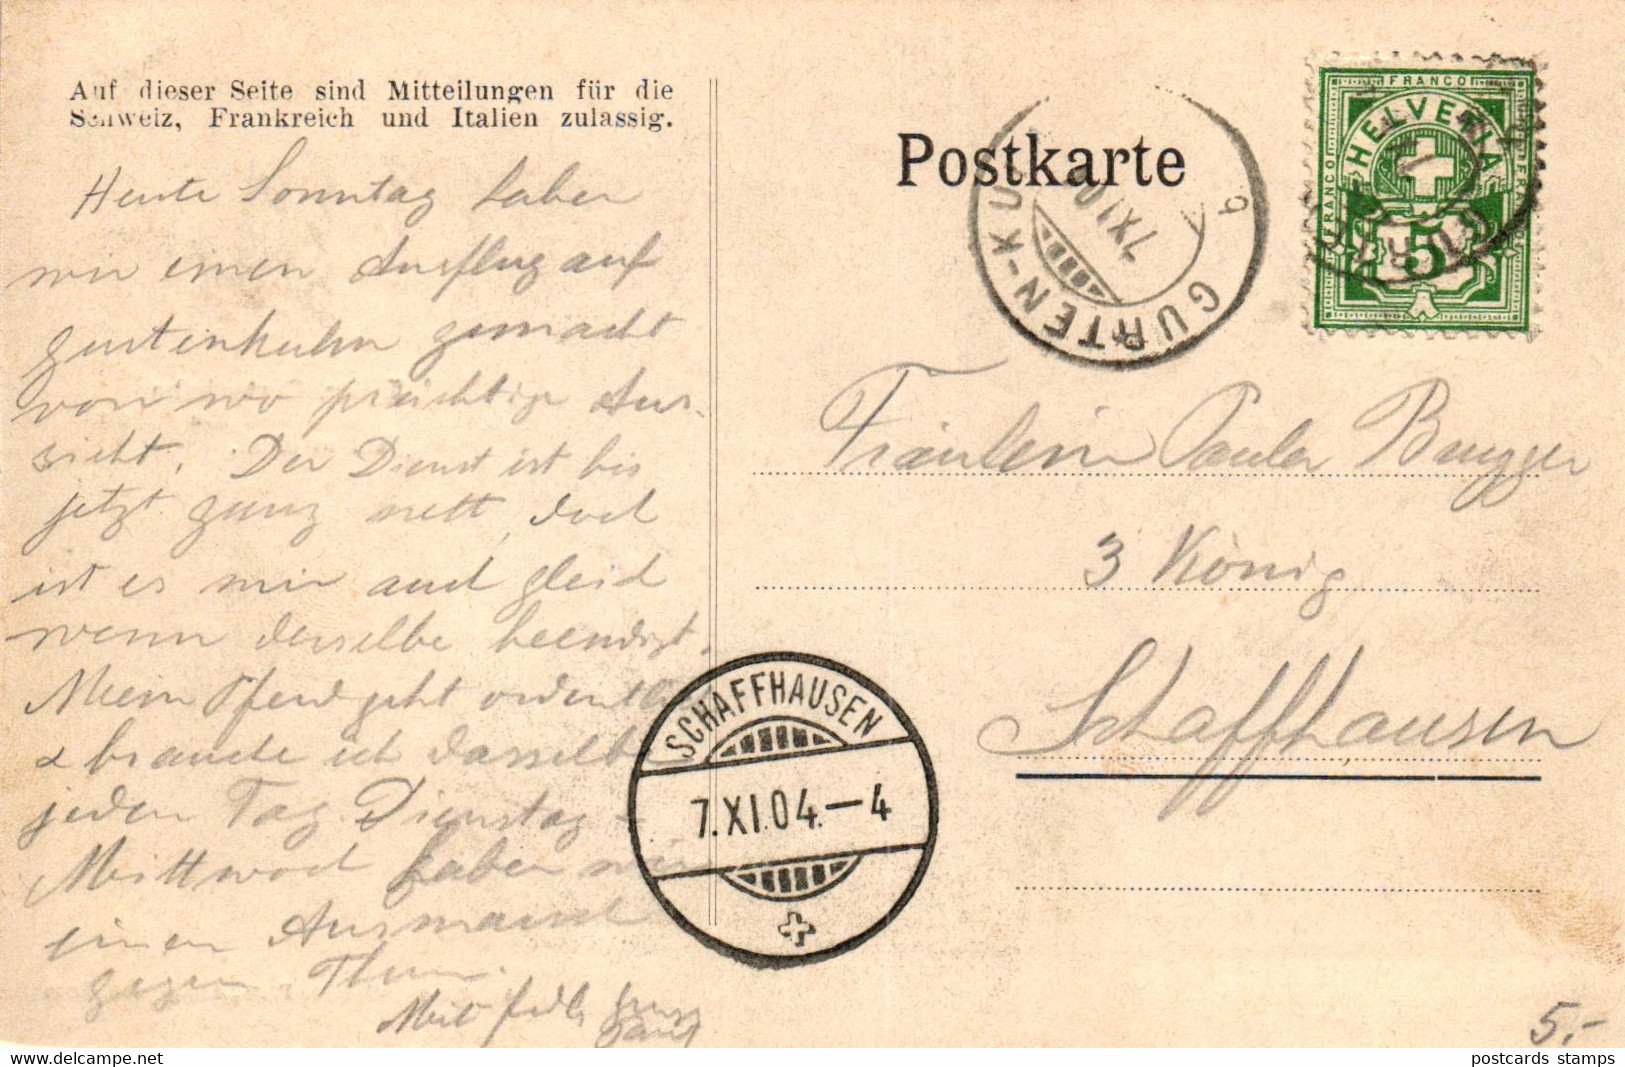 Auf dieser Seite sind Mitteilungen für die
Schweiz, Frankreich und Italien zulässig.
Postkarte
FRANCO
HELVETIA
FRANCO
5
GURTEN-KU
7 XI 0
Heute Sonntag haben
wir einen Ausflug auf
Gurtenkulm gemacht
von wo prächtige Aus-
sicht. Der Dienst ist bis
jetzt ganz nett, doch
ist es mir auch gleich
wenn derselbe beendigt.
Mein Pferd geht ordentlich
& brauche ich dasselbe
jeden Tag. Dienstag -
Mittwoch haben wir
einen Ausmarsch
gegen Thun.
Mit frdl. Gruss
Fräulein Paula Brugger
3 König
Schaffhausen
SCHAFFHAUSEN
7.XI.04.–4
5.-
postcards stamps